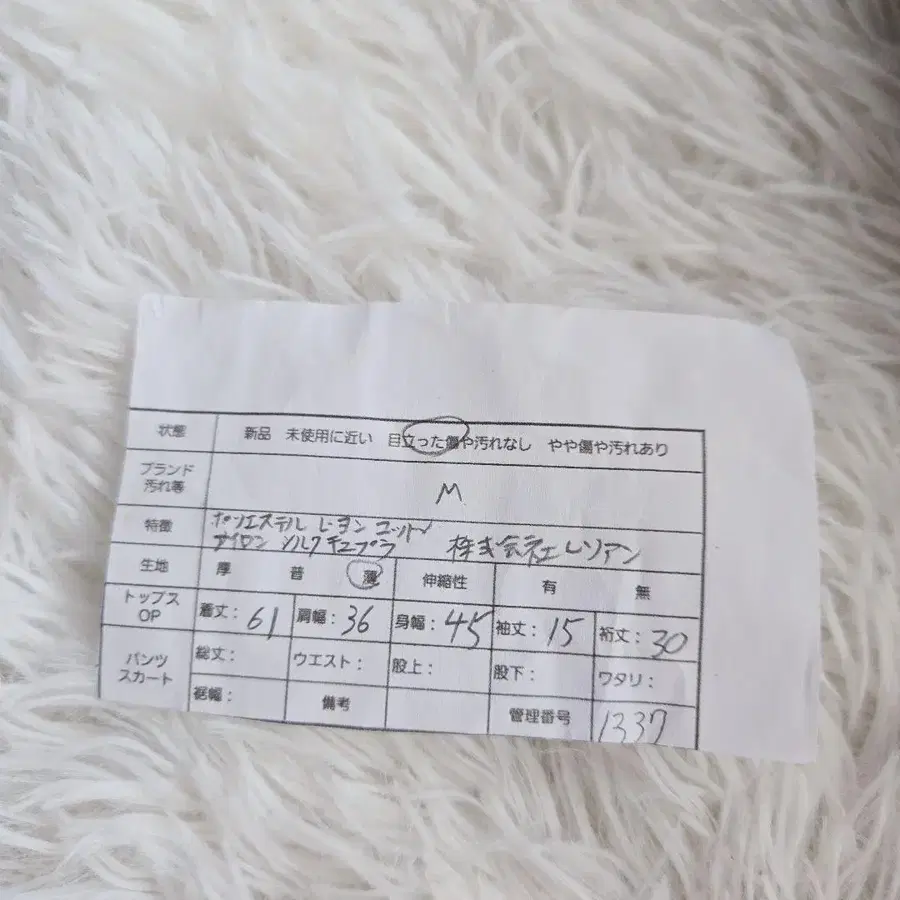 状態 新品 未使用に近い 目立った傷や汚れなし やや傷や汚れあり
ブランド
汚れ等 M
特徴 ポリエステル レーヨン コットン
ナイロン シルク キュプラ 株式会社レリアン
生地 厚 普 薄 伸縮性 有 無
トップス
OP 着丈:61 肩幅:36 身幅:45 袖丈:15 裄丈:30
パンツ
スカート 総丈: ウエスト: 股上: 股下: ワタリ:
裾幅: 備考 管理番号 1337